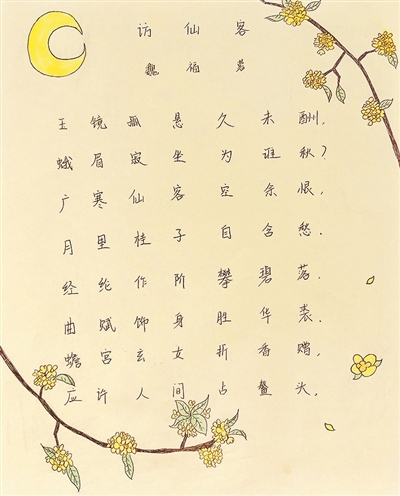 访仙客
魏
玉镜孤悬久未酬，
蛾眉寂坐为谁秋？
广寒仙客空余恨，
月里桂子自含愁．
经纶作阶攀碧落，
曲赋饰身胜华裘．
蟾宫玄女折香赠，
应许人间占鳌头．